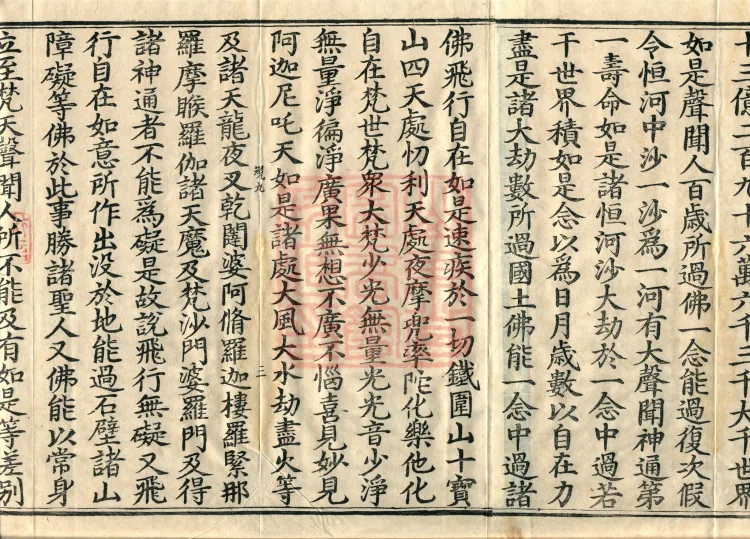 十三億二百九十六萬六千三千大千世界
如是聲聞人百歳所過佛一念能過復次假
令恒河中沙一沙爲一河有大聲聞神通第
一壽命如是諸恒河沙大劫於一念中過若
干世界積如是念以爲日月歳數以自在力
盡是諸大劫數所過國土佛能一念中過諸
佛飛行自在如是速疾於一切鐵圍山十寶
山四天處忉利天處夜摩兜率陀化樂他化
自在梵世梵衆大梵少光無量光光音少淨
無量淨徧淨廣果無想不廣不惱喜見妙見
阿迦尼吒天如是諸處大風大水劫盡火等
現九 三
及諸天龍夜叉乾闥婆阿脩羅迦樓羅緊那
羅摩睺羅伽諸天魔及梵沙門婆羅門及得
諸神通者不能爲礙是故說飛行無礙又飛
行自在如意所作出没於地能過石壁諸山
障礙等佛於此事勝諸聖人又佛能以常身
立至梵天聲聞人所不能及有如是等差别